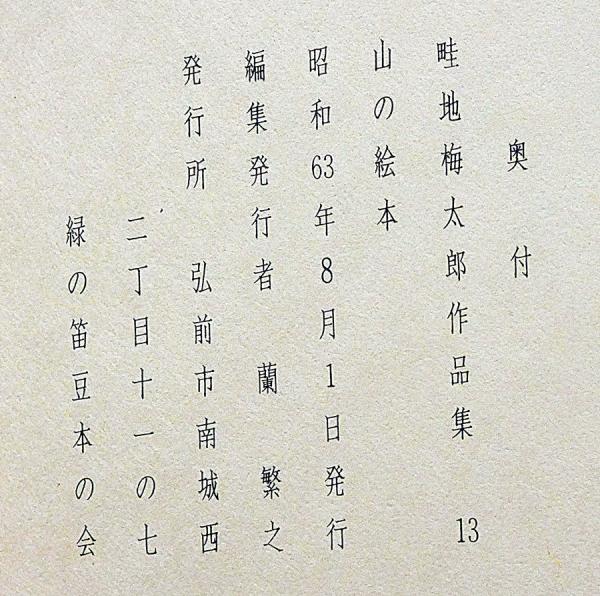 奥付
畦地梅太郎作品集 13
山の絵本
昭和63年8月1日発行
編集発行者 蘭繁之
発行所 弘前市南城西
二丁目十一の七
緑の笛豆本の会